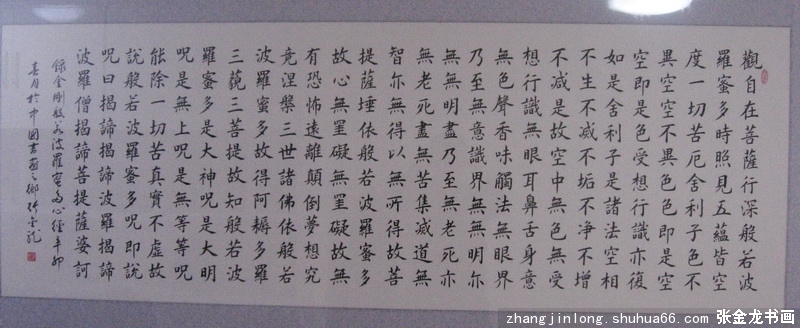 觀自在菩薩行深般若波
羅蜜多時照見五蘊皆空
度一切苦厄舍利子色不
異空空不異色色即是空
空即是色受想行識亦復
如是舍利子是諸法空相
不生不滅不垢不净不增
不减是故空中無色無受
想行識無眼耳鼻舌身意
無色聲香味觸法無眼界
乃至無意識界無無明亦
無無明盡乃至無老死亦
無老死盡無苦集滅道無
智亦無得以無所得故菩
提薩埵依般若波羅蜜多
故心無罣礙無罣礙故無
有恐怖遠離顛倒夢想究
竟涅槃三世諸佛依般若
波羅蜜多故得阿耨多羅
三藐三菩提故知般若波
羅蜜多是大神呪是大明
呪是無上呪是無等等呪
能除一切苦真實不虛故
說般若波羅蜜多呪即說
呪曰揭諦揭諦波羅揭諦
波羅僧揭諦菩提薩婆訶
錄金剛般若波羅蜜多心經辛卯
春月於中國書画之鄉張金龍
zhangjinlong.shuhua66.com 张金龙书画